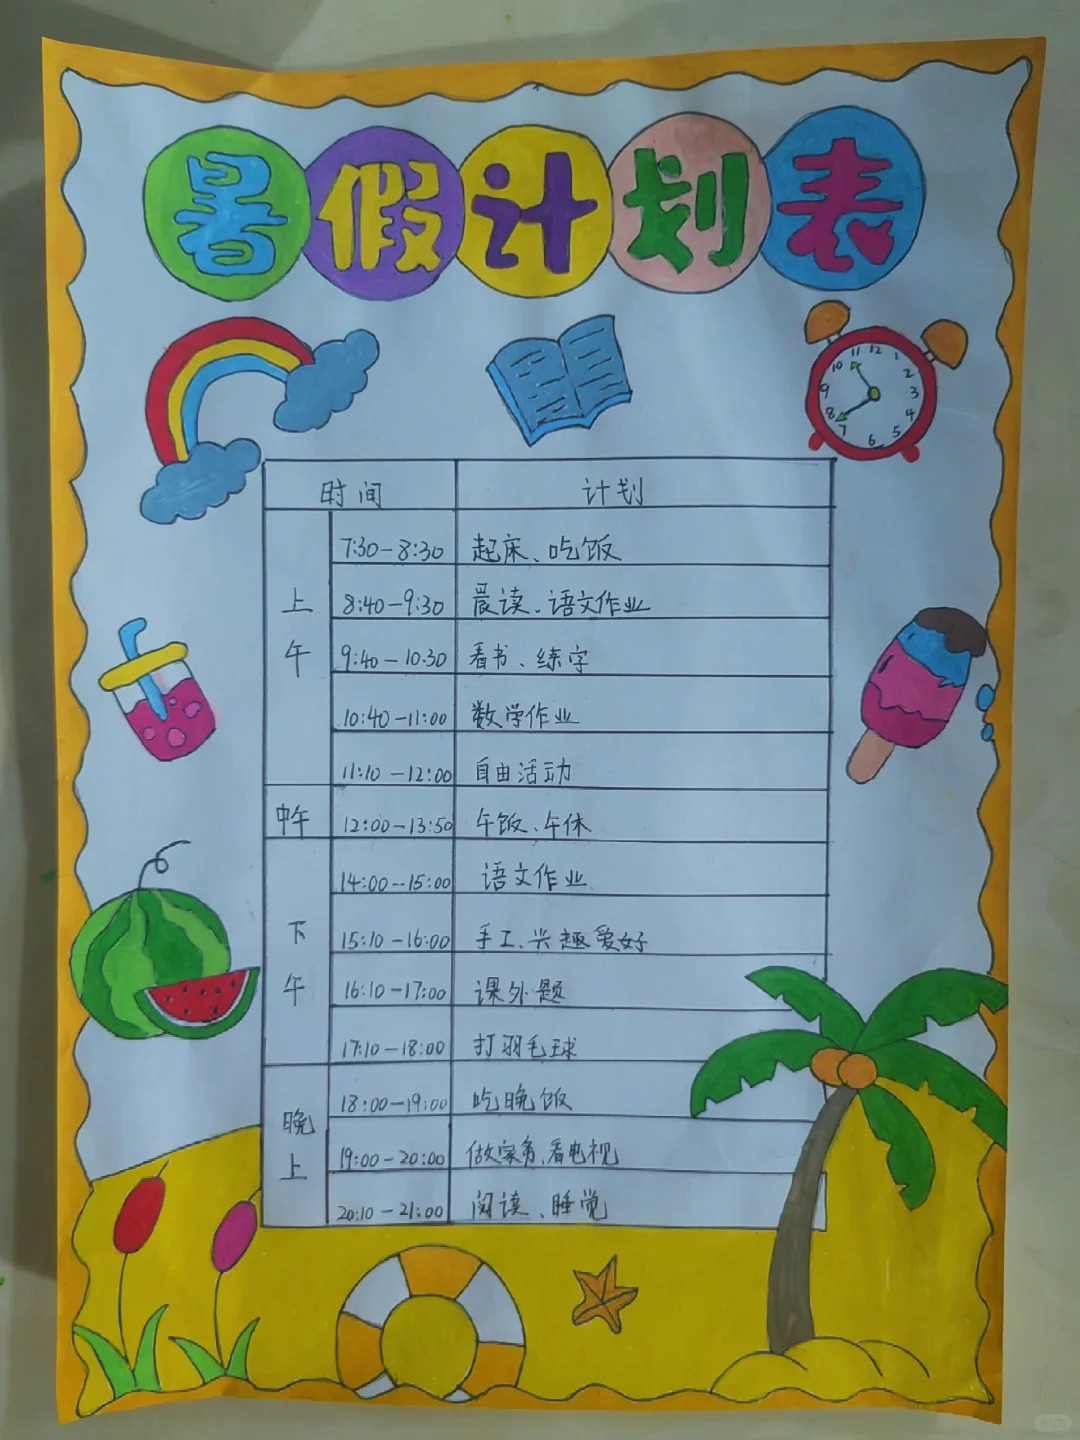 暑假计划表
11 12 1
10 2
9 3
8 4
7 6 5
时间 计划
上午
7:30-8:30 起床、吃饭
8:40-9:30 晨读、语文作业
9:40-10.30 看书、练字
10:40-11:00 数学作业
11:10-12:00 自由活动
中午 12:00-13:50 午饭、午休
下午
14:00--15:00 语文作业
15:10-16:00 手工、兴趣爱好
16:10-17:00 课外题
17:10-18:00 打羽毛球
晚上
18:00-19:00 吃晚饭
19:00-20:00 做家务、看电视
20:10-21:00 阅读、睡觉